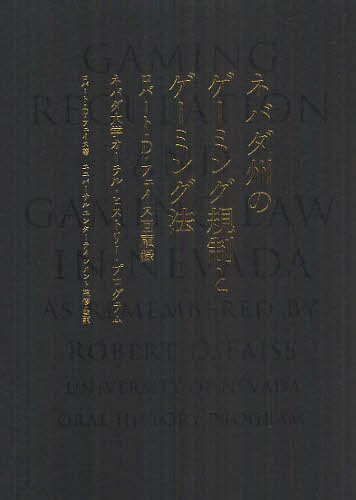 ネバダ州の
ゲーミング規制と
ゲーミング法
ロバート・D・フェイス回顧録
ネバダ大学オーラル・ヒストリー・プログラム
ロバート・D・フェイス著 ユニバーサルエンターテインメント
GAMING
REGULATION
AND
GAMING LAW
IN NEVADA
AS REMEMBERED BY
ROBERT D. FAISS
UNIVERSITY OF NEVADA
ORAL HISTORY PROGRAM